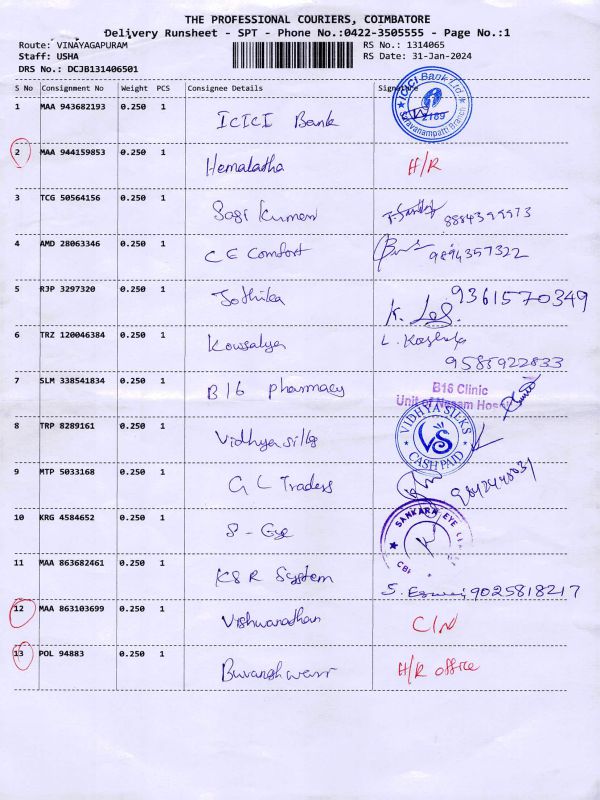 THE PROFESSIONAL COURIERS, COIMBATORE
Delivery Runsheet - SPT - Phone No.:0422-3505555 - Page No.:1
Route: VINAYAGAPURAM RS No.: 1314065
Staff: USHA RS Date: 31-Jan-2024
DRS No.: DCJB131406501
S No Consignment No Weight PCS Consignee Details Signature
1 MAA 943682193 0.250 1 ICICI Bank ICICI Bank Ltd. 2189 Saravanampatti Branch
2 MAA 944159853 0.250 1 Hemalatha H/R
3 TCG 50564156 0.250 1 Sasi Kumar 8884399973
4 AMD 28063346 0.250 1 C E Comfort 9894357322
5 RJP 3297320 0.250 1 Jothika K. 9361570349
6 TRZ 120046384 0.250 1 Kowsalya L.
9585922833
7 SLM 338541834 0.250 1 B16 pharmacy B16 Clinic
Unit of
8 TRP 8289161 0.250 1 Vidhya silks VIDHYA SILKS VS CASH PAID
9 MTP 5033168 0.250 1 G L Traders
10 KRG 4584652 0.250 1 S - Eye SANKARA EYE
11 MAA 863682461 0.250 1 KSR System S. 9025818217
12 MAA 863103699 0.250 1 Vishwanadhan C/N
13 POL 94883 0.250 1 Buvaneshwari H/R office